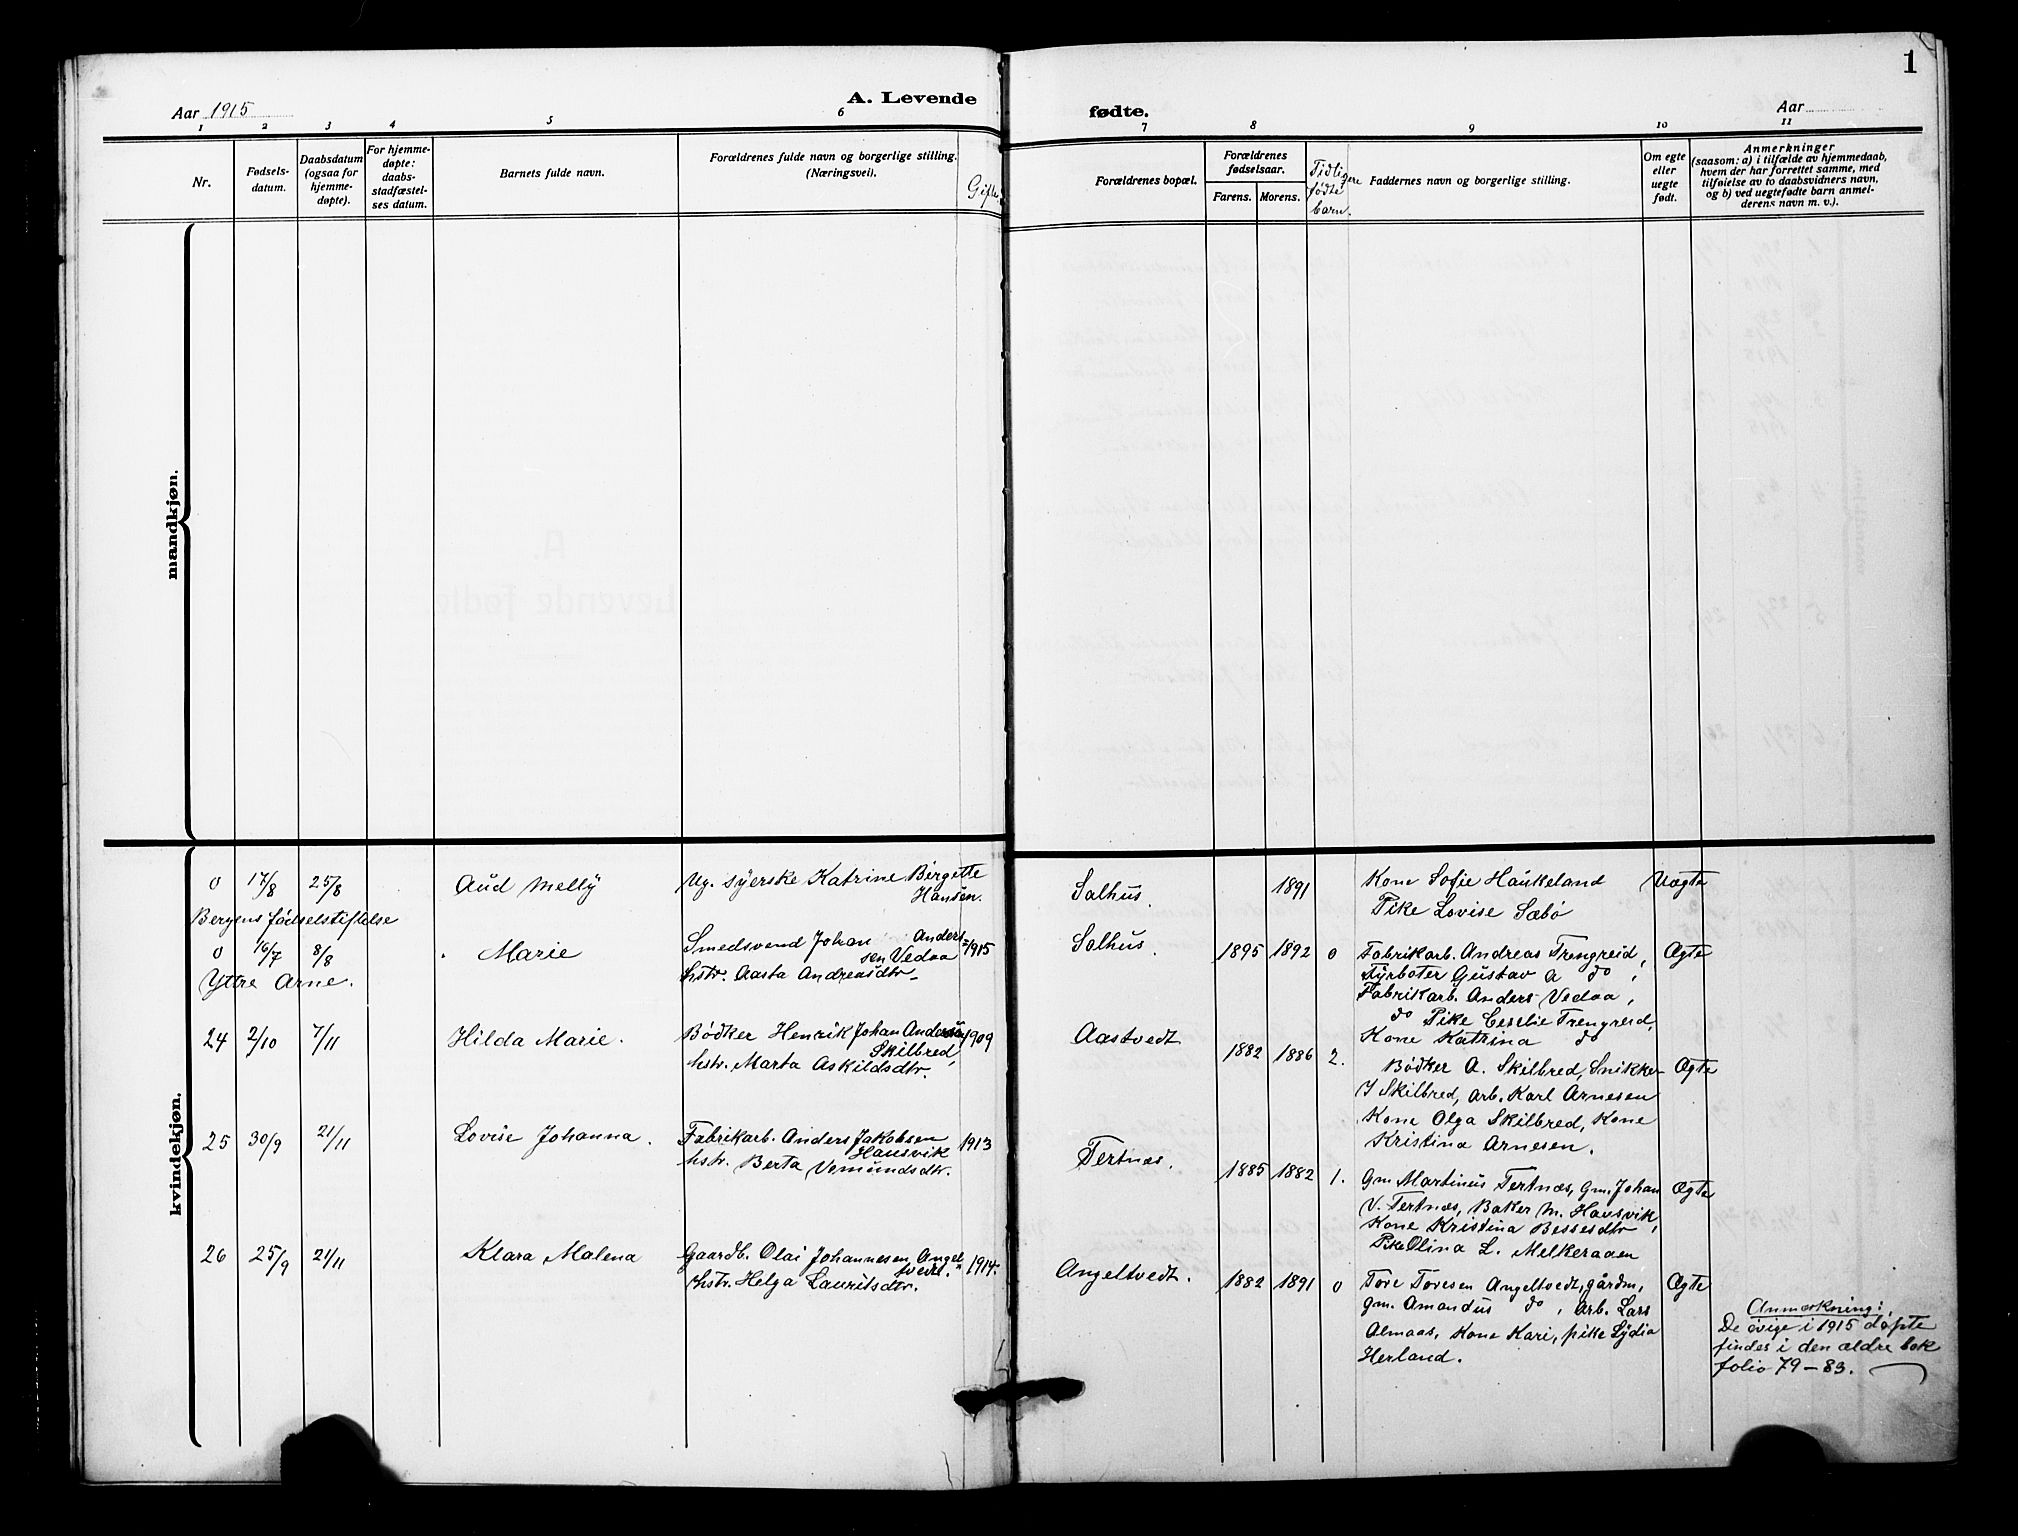 1
Aar 1915
A. Levende
fødte.
Aar
1 2 3 4 5 6 7 8 9 10 11
Nr.
Fødsels-
datum.
Daabsdatum
(ogsaa for
hjemme-
døpte).
For hjemme-
døpte:
daabs-
stadfæstel-
ses datum.
Barnets fulde navn.
Forældrenes fulde navn og borgerlige stilling.
(Næringsvei).
Gifte.
Forældrenes bopæl.
Forældrenes
fødselsaar.
Farens. Morens.
Tidligere
fødte
barn.
Faddernes navn og borgerlige stilling.
Om egte
eller
uegte
født.
Anmerkninger
(saasom: a) i tilfælde av hjemmedaab,
hvem der har forrettet samme, med
tilføielse av to daabsvidners navn,
og b) ved uegtefødte barn anmel-
derens navn m. v.).
mandkjøn.
kvindekjøn.
0 17/8 25/8 Aud Melly
Ug. syerske Katrine Birgette
Hansen.
Salhus.
1891
Kone Sofie Haukeland
Pike Lovise Sæbö
Uægte
Bergens födselstiftelse
0 16/7 8/8 Marie
Smedsvend Johan Anders-
sen Vedaa
hstr. Aasta Andreasdtr.
1915
Salhus.
1895 1892 0
Fabrikarb. Andreas Trengreid,
Fyrböter Gustav A do,
Fabrikarb. Anders Vedaa,
do Pike Ceselie Trengreid,
Kone Katrina do
Ægte
Ytre Arne.
24 2/10 7/11 Hilda Marie.
Bödker Henrik Johan Andersen
Skilbred,
hstr. Marta Askildsdtr.
1909
Aastvedt
1882 1886 2.
Bödker A. Skilbred, Snikker
J Skilbred, arb. Karl Arnesen
Kone Olga Skilbred, Kone
Kristina Arnesen.
Ægte
25 30/9 21/11 Lovise Johanna.
Fabrikarb. Anders Jakobsen
Hausvik
hstr. Berta Vemundsdtr.
1913
Tertnæs.
1885 1882 1.
Gm Martinus Tertnæs, Gm. Johan
V. Tertnæs, Baker M. Hausvik,
Kone Kristina Bessesdtr,
Pike Olina L. Melkeraaen
Ægte
26 25/9 21/11 Klara Malena
Gaardb. Olai Johannesen Angel-
tvedt.
hstr. Helga Lauritsdtr.
1914.
Angeltvedt.
1882 1891 0
Tore Toresen Angeltvedt, gårdm,
gm. Amandus do, arb. Lars
Almaas, Kone Kari, pike Lydia
Herland.
Ægte
Anmærkning:
De övige i 1915 döpte
findes i den ældre bok
folio 79-83.